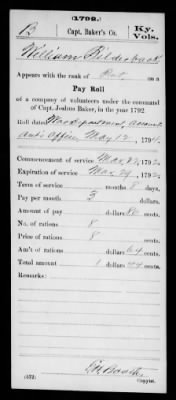 1792.
B Capt. Baker's Co. Ky. Vols.
William Bilderback
Appears with the rank of Pvt on a
Pay Roll
of a company of volunteers under the command
of Capt. Joshua Baker, in the year 1792.
Roll dated War Department, Account
Ant's Office, May 12, 1794.
Commencement of service Mar 22, 1792.
Expiration of service Mar 29, 1792.
Term of service months 8 days.
Pay per month 3 dollars.
Amount of pay dollars 80 cents.
No. of rations 8
Price of rations 8 cents.
Am't of rations dollars 64 cents.
Total amount 1 dollars 44 cents.
Remarks:
(572) Copyist.